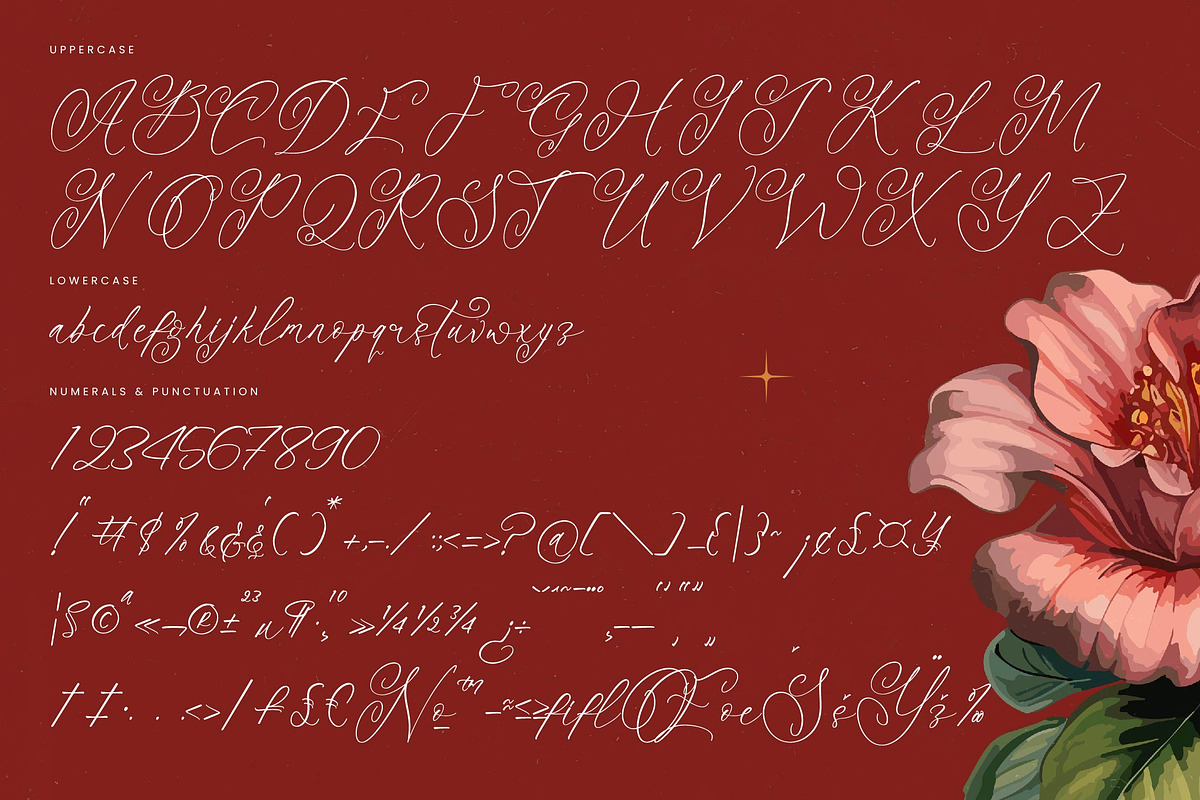 UPPERCASE
ABCDEFGHIJKLM
NOPQRSTUVWXYZ
LOWERCASE
abcdefghijklmnopqrstuvwxyz
NUMERALS & PUNCTUATION
1234567890
!"#$%&'()*+,-./:;<=>?@[\]_{|}~¡¢£¤¥
¦§©ª«¬®±²³µ¶·¸¹º»¼½¾¿÷
†‡•‹›⁄ƒ₤€№™−≈≤≥fiflŒœŠšŸž‰